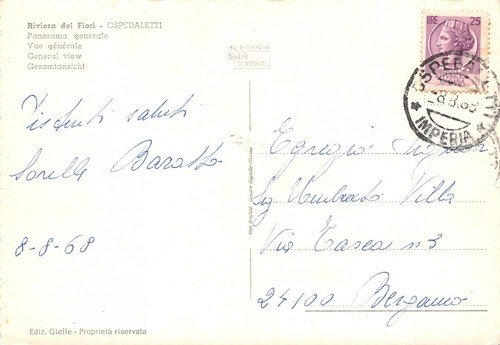 Riviera dei Fiori - OSPEDALETTI
Panorama generale
Vue générale
General view
Gesamtansicht
Kodak
LIRE 25
OSPEDALETTI
8.8.68
* IMPERIA *
Distinti saluti
Sorelle Baratto
8-8-68
Egregio Signor
Sig Umberto Villa
Via Tasca n 3
24100 Bergamo
Ediz. Gieffe - Proprietà riservata